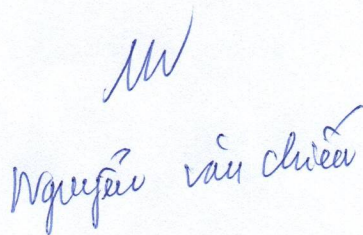 Nguyễn văn chiến